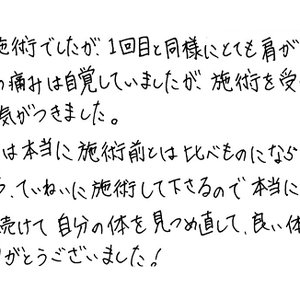 施術でしたが、1回目と同様にとても肩が
の痛みは自覚していましたが、施術を受
気がつきました。
は本当に施術前とは比べものになら
う、ていねいに施術して下さるので本当に
続けて自分の体を見つめ直して、良い体
がとうございました!